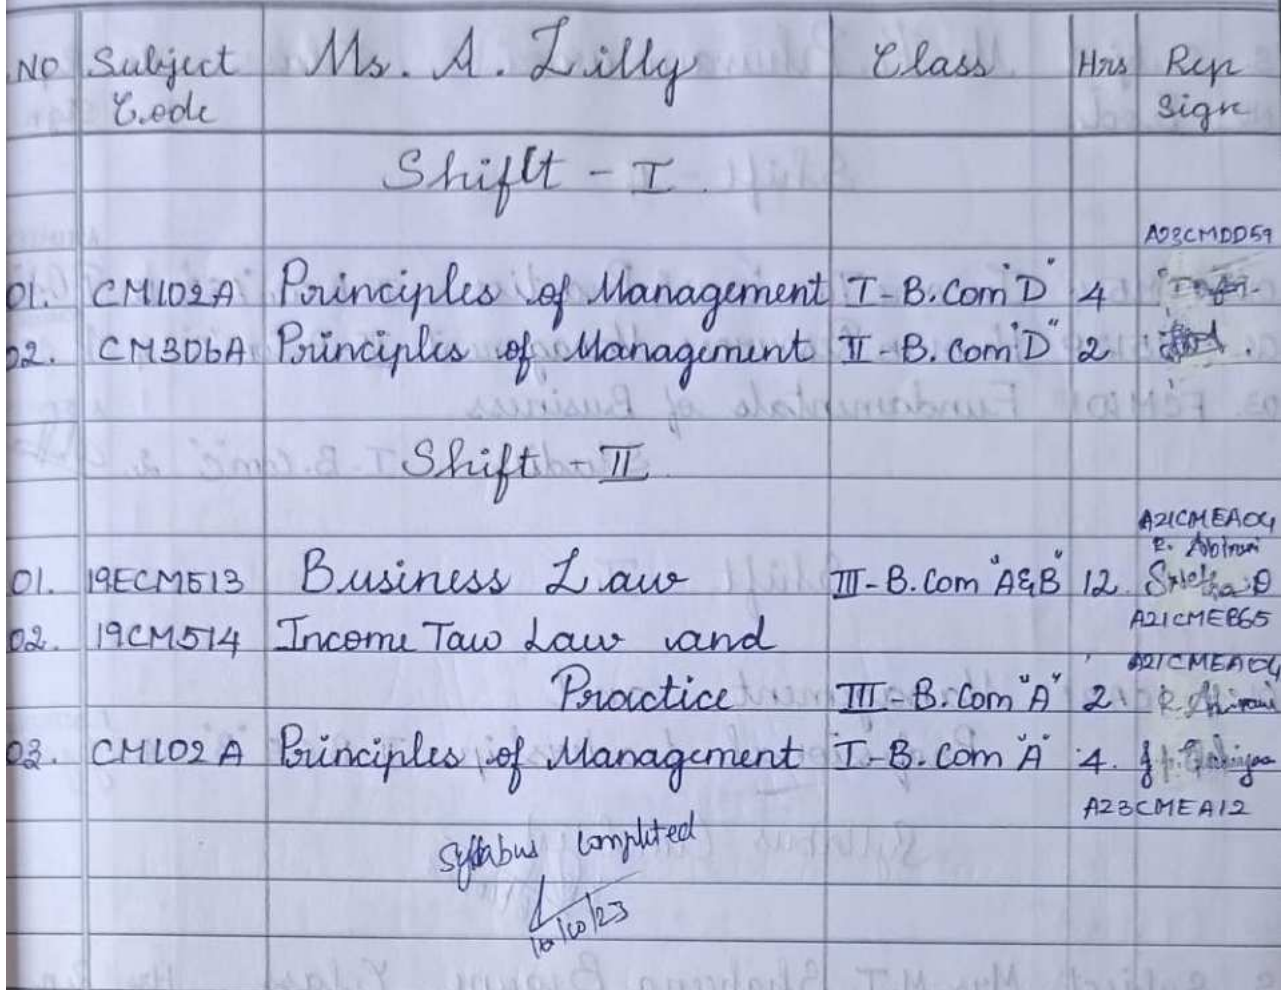 NO Subject Code Ms. A. Lilly Class Hrs Rep Sign
Shift - I
A23CMDD59
01. CM102A Principles of Management I - B.Com "D" 4
02. CM306A Principles of Management II - B.Com "D" 2
Shift - II
A21CMEA04
01. 19ECM513 Business Law III - B.Com "A&B" 12
A21CMEB65
02. 19CM514 Income Taw Law and
A21CMEA04
Practice III - B.Com "A" 2
03. CM102A Principles of Management I - B.Com "A" 4.
A23CMEA12
Syllabus completed